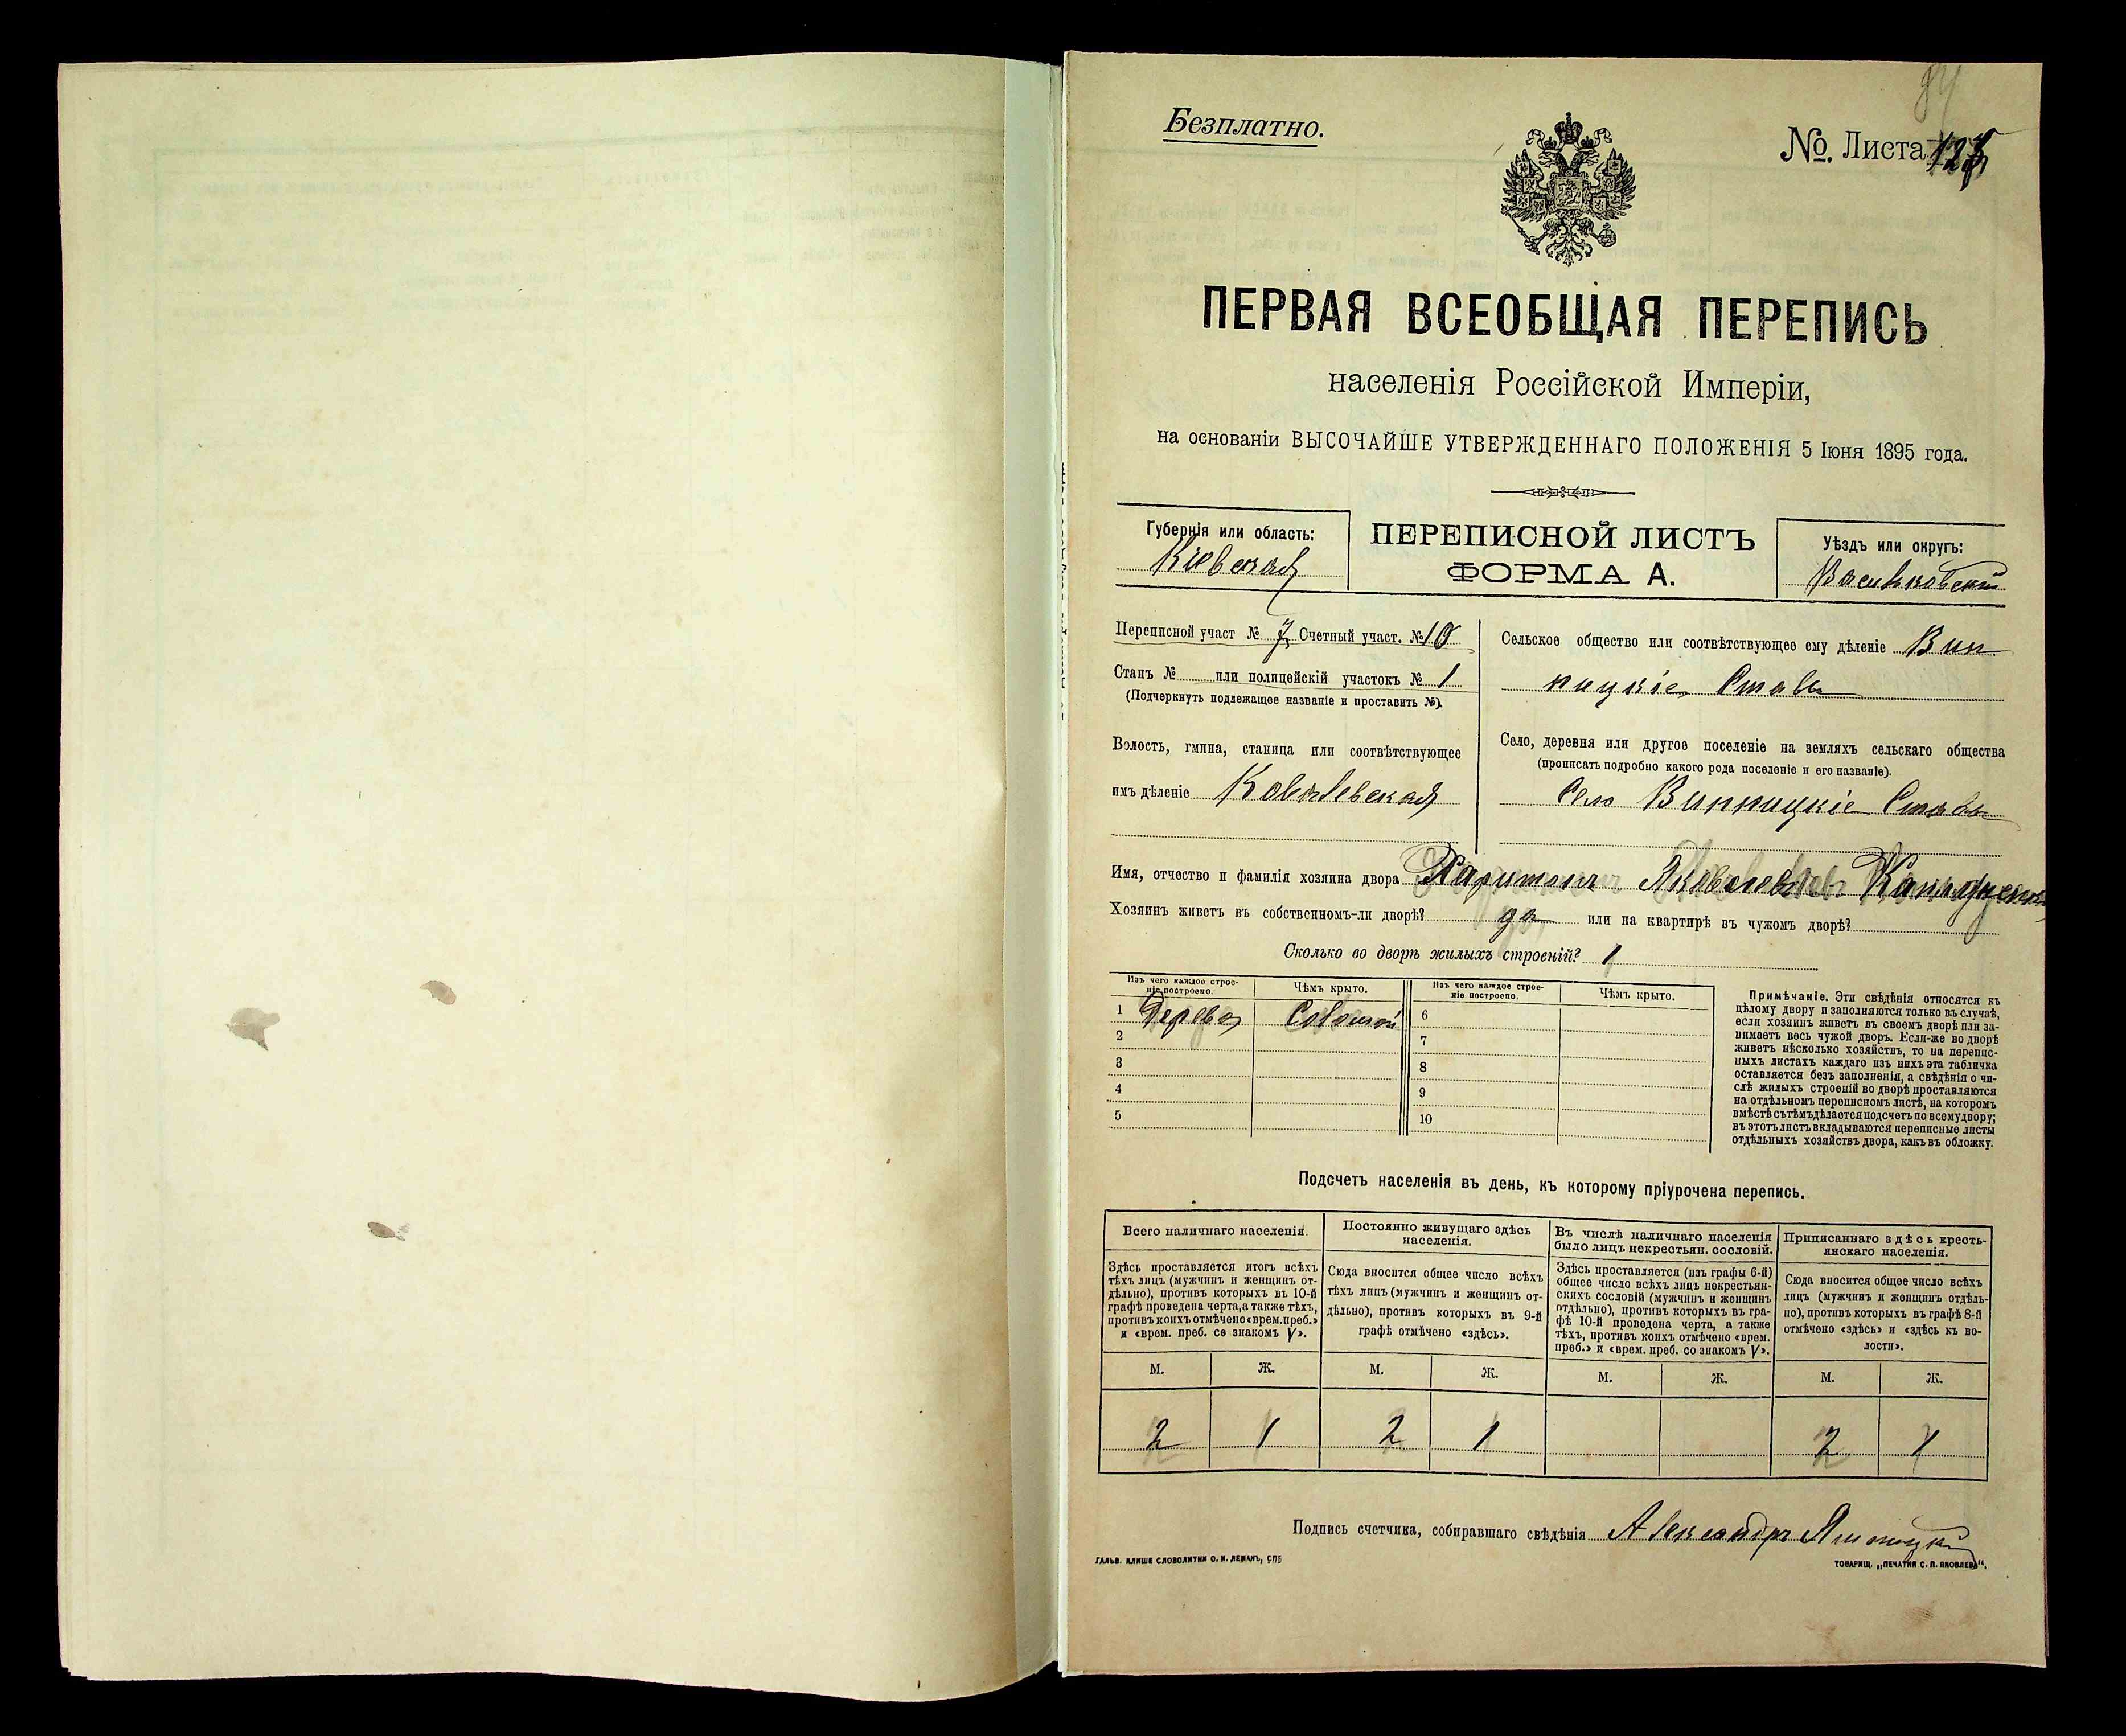 Безплатно.
№. Листа
ПЕРВАЯ ВСЕОБЩАЯ ПЕРЕПИСЬ
населенія Россійской Имперіи,
на основаніи ВЫСОЧАЙШЕ УТВЕРЖДЕННАГО ПОЛОЖЕНІЯ 5 Іюня 1895 года.
Губернія или область:
Кіевская
ПЕРЕПИСНОЙ ЛИСТЪ
ФОРМА А.
Уѣздъ или округъ:
Васильковскій
Переписной участ № 7 Счетный участ. № 10
Станъ № или полицейскій участокъ № 1
(Подчеркнуть подлежащее названіе и проставить №).
Волость, гмина, станица или соотвѣтствующее
имъ дѣленіе Ковалевская
Сельское общество или соотвѣтствующее ему дѣленіе Вин
ницкіе Ставы
Село, деревня или другое поселеніе на земляхъ сельскаго общества
(прописать подробно какого рода поселеніе и его названіе).
Село Винницкіе Ставы
Имя, отчество и фамилія хозяина двора Харитонъ Яковлевъ
Хозяинъ живетъ въ собственномъ-ли дворѣ? да или на квартирѣ въ чужомъ дворѣ?
Сколько во дворѣ жилыхъ строеній? 1
Изъ чего каждое строе-
ніе построено.
Чѣмъ крыто.
Изъ чего каждое строе-
ніе построено.
Чѣмъ крыто.
1 Дерева Соломой
2
3
4
5
6
7
8
9
10
Примѣчаніе. Эти свѣдѣнія относятся къ
цѣлому двору и заполняются только въ случаѣ,
если хозяинъ живетъ въ своемъ дворѣ или за-
нимаетъ весь чужой дворъ. Если-же во дворѣ
живетъ нѣсколько хозяйствъ, то на перепис-
ныхъ листахъ каждаго изъ нихъ эта табличка
оставляется безъ заполненія, а свѣдѣнія о чи-
слѣ жилыхъ строеній во дворѣ проставляются
на отдѣльномъ переписномъ листѣ, на которомъ
вмѣстѣ съ тѣмъ дѣлается подсчетъ по всему двору;
въ этотъ листъ вкладываются переписные листы
отдѣльныхъ хозяйствъ двора, какъ въ обложку.
Подсчетъ населенія въ день, къ которому пріурочена перепись.
Всего наличнаго населенія.
Здѣсь проставляется итогъ всѣхъ
тѣхъ лицъ (мужчинъ и женщинъ от-
дѣльно), противъ которыхъ въ 10-й
графѣ проведена черта, а также тѣхъ,
противъ коихъ отмѣчено «врем. преб.»
и «врем. преб. со знакомъ V».
Постоянно живущаго здѣсь
населенія.
Сюда вносится общее число всѣхъ
тѣхъ лицъ (мужчинъ и женщинъ от-
дѣльно), противъ которыхъ въ 9-й
графѣ отмѣчено «здѣсь».
Въ числѣ наличнаго населенія
было лицъ некрестьян. сословій.
Здѣсь проставляется (изъ графы 6-й)
общее число всѣхъ лицъ некрестьян-
скихъ сословій (мужчинъ и женщинъ
отдѣльно), противъ которыхъ въ гра-
фѣ 10-й проведена черта, а также
тѣхъ, противъ коихъ отмѣчено «врем.
преб.» и «врем. преб. со знакомъ V».
Приписаннаго здѣсь кресть-
янскаго населенія.
Сюда вносится общее число всѣхъ
лицъ (мужчинъ и женщинъ отдѣль-
но), противъ которыхъ въ графѣ 8-й
отмѣчено «здѣсь» и «здѣсь къ во-
лости».
М. Ж. М. Ж. М. Ж. М. Ж.
2 1 2 1 2 1
Подпись счетчика, собиравшаго свѣдѣнія Александръ
ГАЛЬВ. КЛИШЕ СЛОВОЛИТНИ О. И. ЛЕМАНЪ, СПБ
ТОВАРИЩ. „ПЕЧАТНЯ С. П. ЯКОВЛЕВА“.